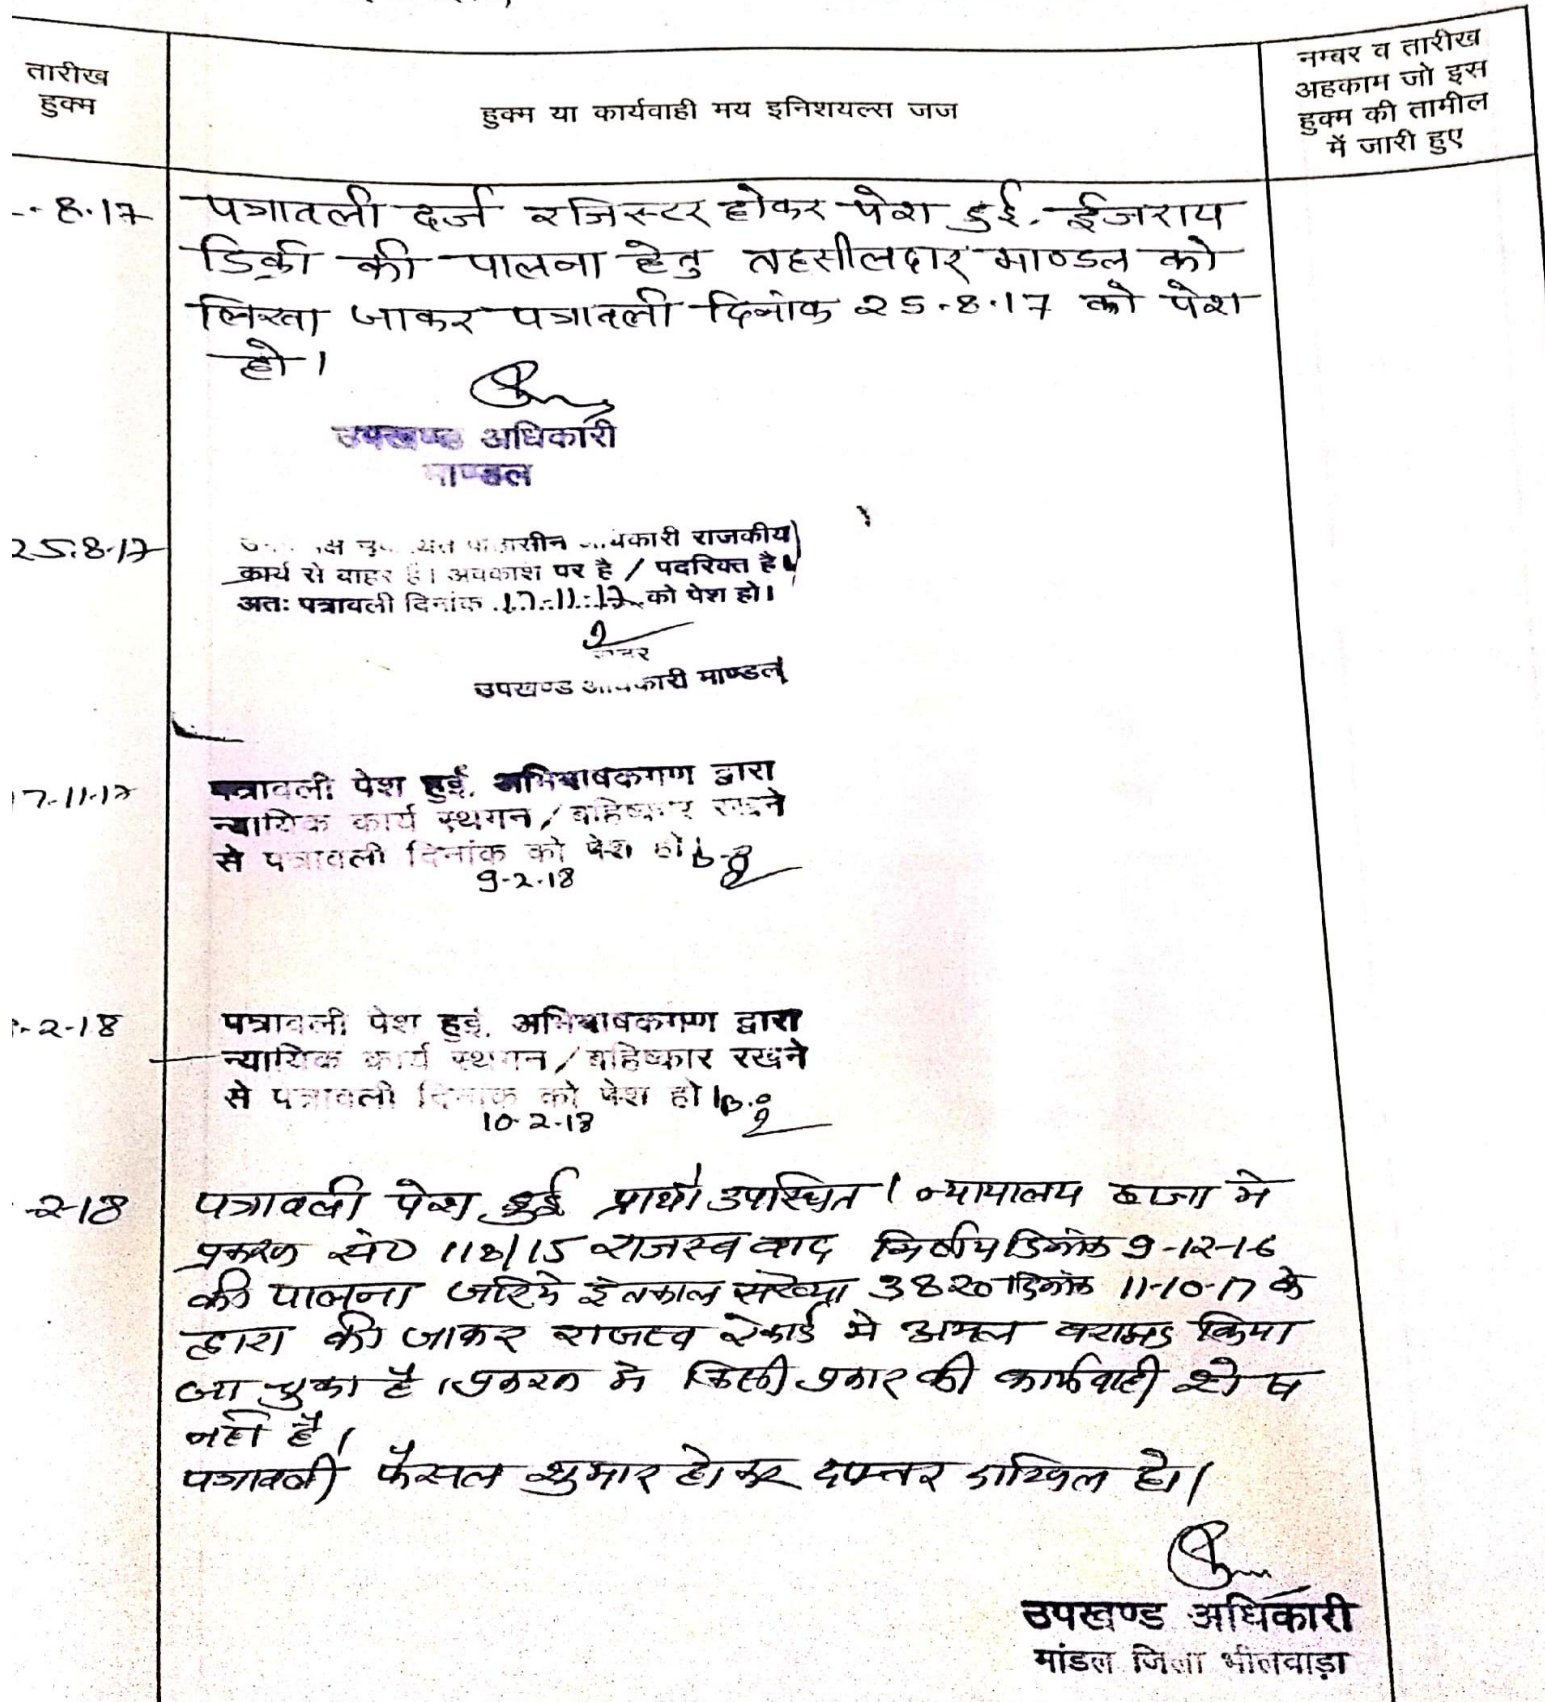 तारीख
हुक्म
हुक्म या कार्यवाही मय इनिशयल्स जज
नम्बर व तारीख
अहकाम जो इस
हुक्म की तामील
में जारी हुए
8.17
पत्रावली दर्ज रजिस्टर होकर पेश हुई. ईजराय
डिक्री की पालना हेतु तहसीलदार माण्डल को
लिखा जाकर पत्रावली दिनांक 25.8.17 को पेश
हो।
उपखण्ड अधिकारी
माण्डल
25.8.17
राजकीय
कार्य से बाहर है। अवकाश पर है / पदरिक्त है।
अतः पत्रावली दिनांक 17-11-17 को पेश हो।
उपखण्ड अधिकारी माण्डल
7-11-17
पत्रावली पेश हुई. अभिभाषकगण द्वारा
न्यायिक कार्य स्थगन / बहिष्कार रखने
से पत्रावली दिनांक को पेश हो।
9-2-18
-2-18
पत्रावली पेश हुई. अभिभाषकगण द्वारा
न्यायिक कार्य स्थगन / बहिष्कार रखने
से पत्रावली दिनांक को पेश हो।
10-2-18
-2-18
पत्रावली पेश हुई प्रार्थी उपस्थित। न्यायालय हाजा मे
प्रकरण सं० 118/15 राजस्व वाद निर्णय दिनांक 9-12-16
की पालना जरिये इंतकाल संख्या 3820 दिनांक 11-10-17 के
द्वारा की जाकर राजस्व रेकार्ड मे अमल दरामद किया
जा चुका है। प्रकरण मे किसी प्रकार की कार्यवाही शेष
नहीं है।
पत्रावली फैसल शुमार होकर दफ्तर दाखिल हो।
उपखण्ड अधिकारी
मांडल जिला भीलवाड़ा